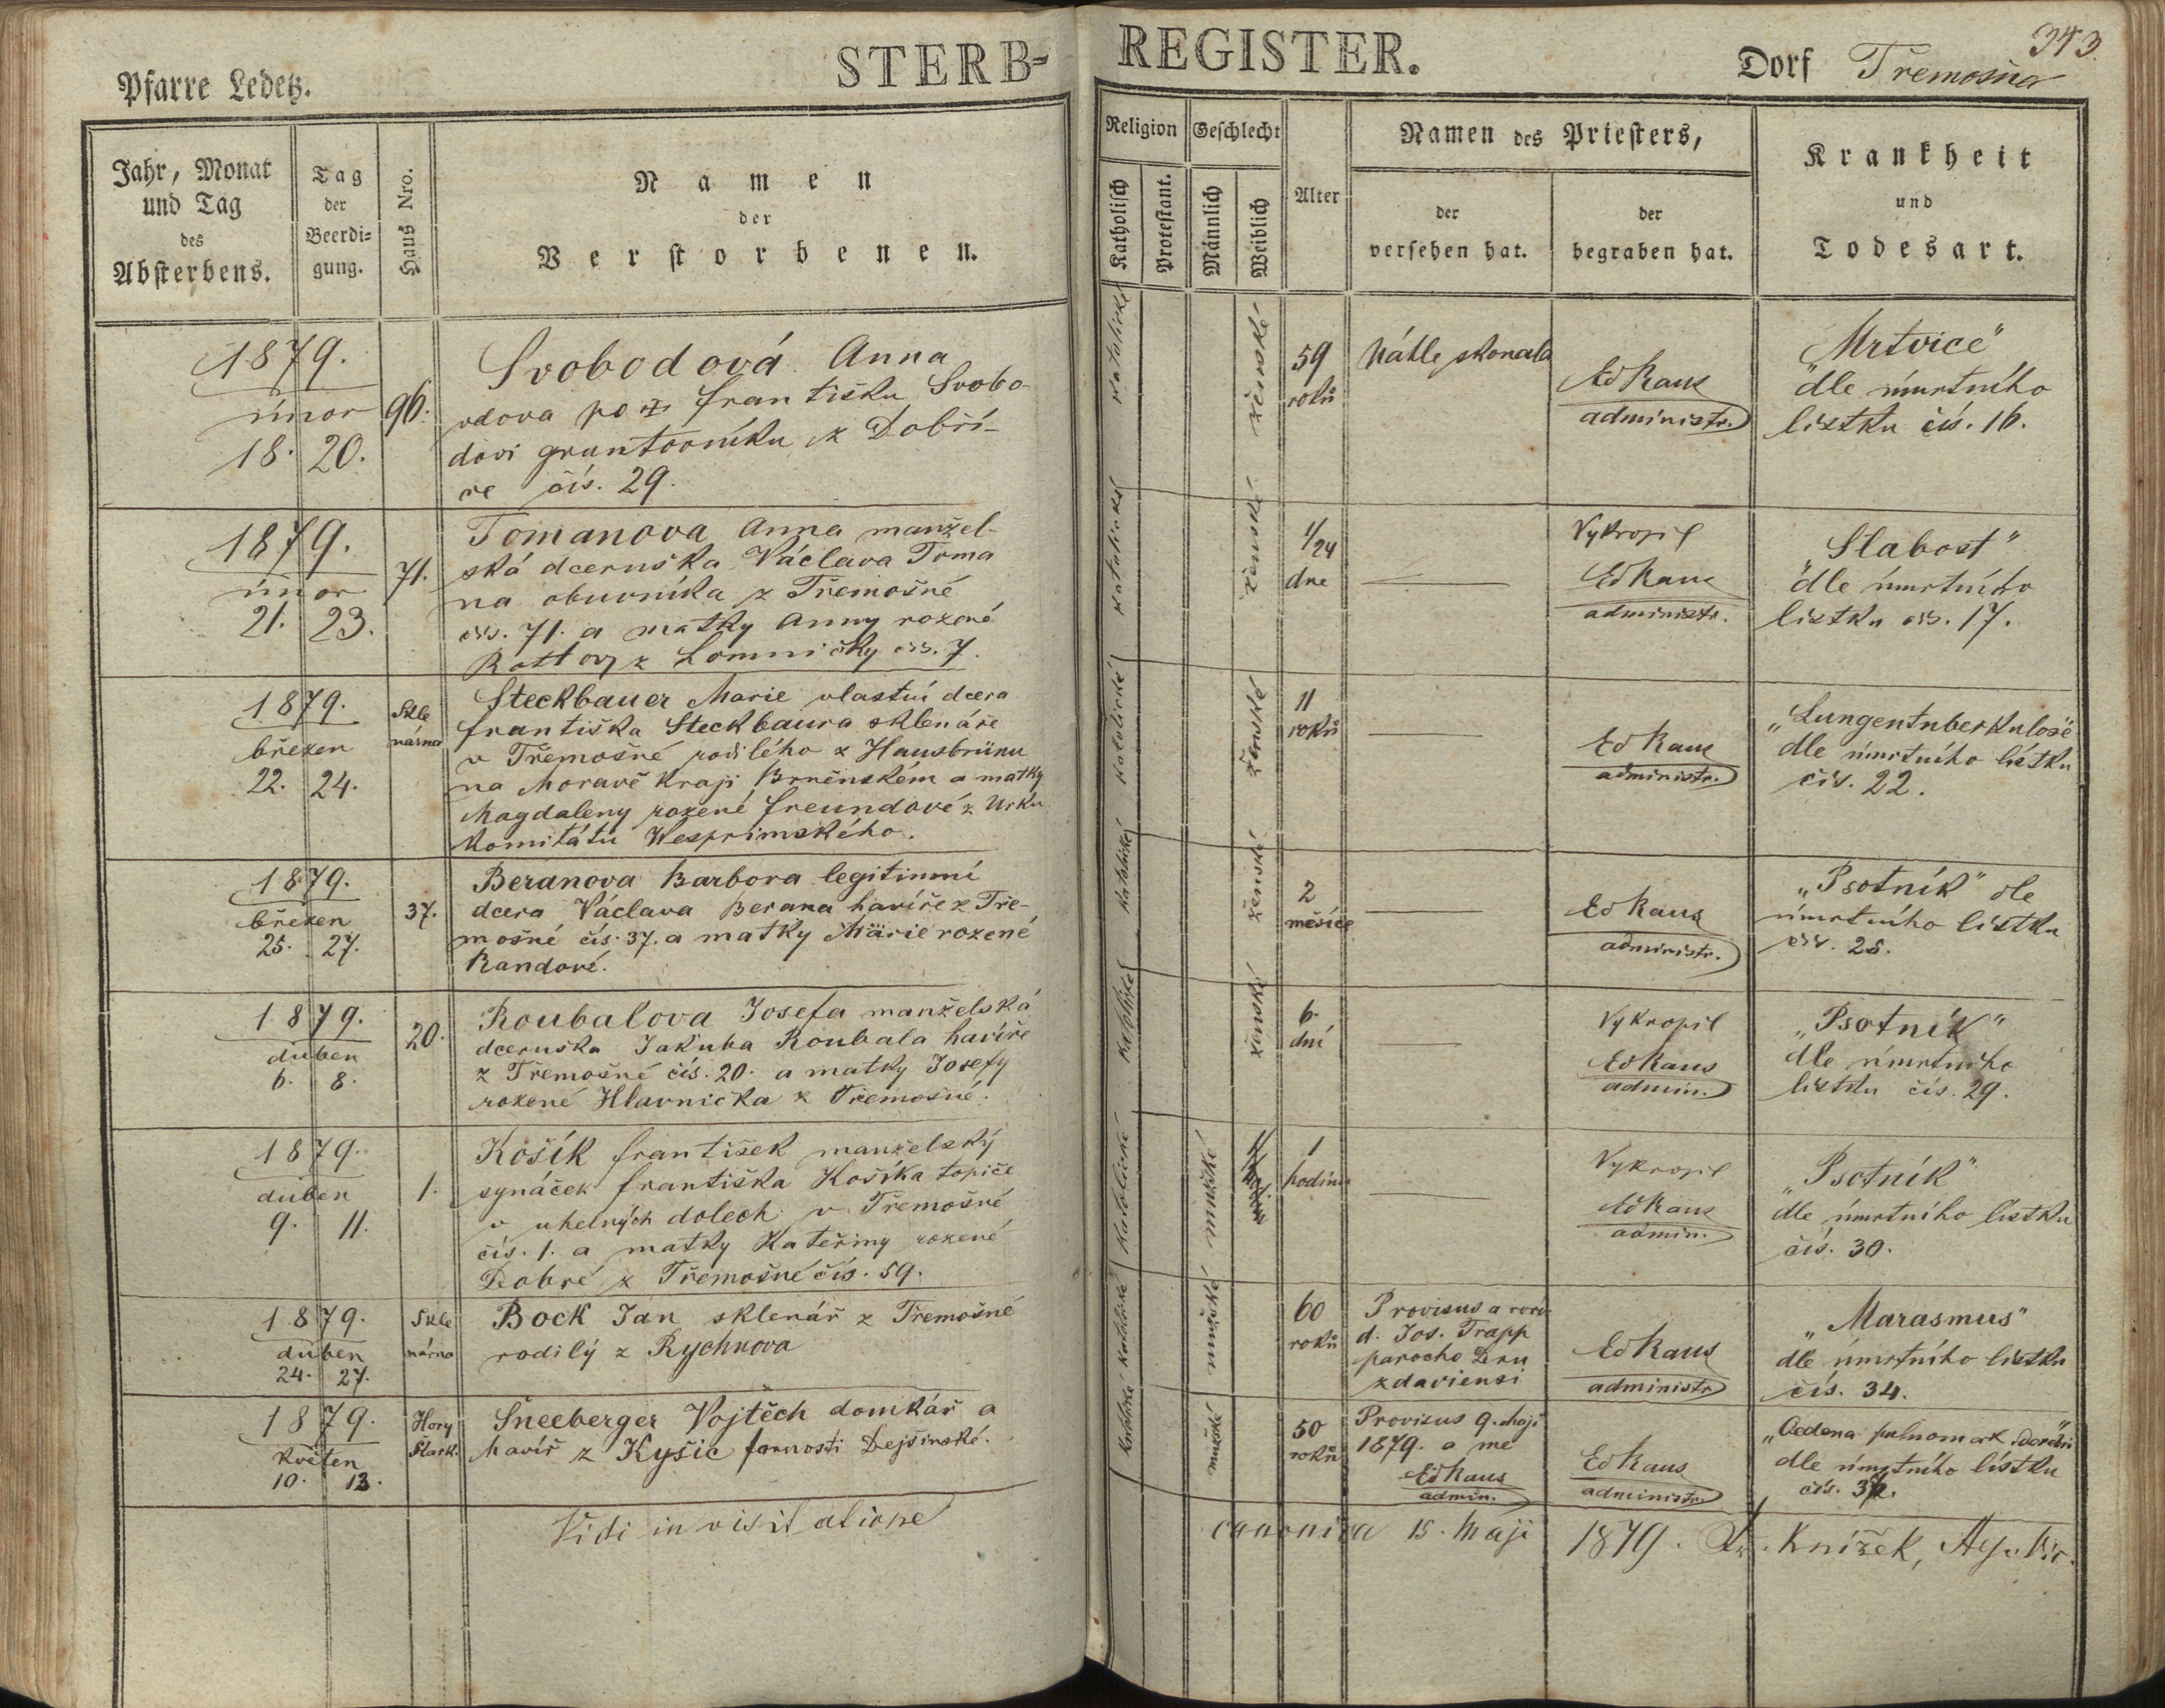 Pfarre Ledetz.
STERB-
REGISTER.
Dorf Třemošna
343.
Jahr, Monat
und Tag
des
Absterbens.
Tag
der
Beerdi=
gung.
Haus Nro.
Namen
der
Verstorbenen.
Religion
Katholisch
Protestant.
Geschlecht
Männlich
Weiblich
Alter
Namen des Priesters,
der
versehen hat.
der
begraben hat.
Krankheit
und
Todesart.
1879.
únor
18. 20.
96.
Svobodová Anna
vdova po Františku Svobo-
dovi gruntovníku z Dobří-
ve čís. 29.
katolické
ženské
59
roků
Náhle skonala
Ed Raus
administr.
„Mrtvice"
dle úmrtního
lístku čís. 16.
1879.
únor
21. 23.
71.
Tomanova Anna manžel-
ská dceruška Václava Toma
na obuvníka z Třemošné
čís. 71. a matky Anny rozené
Rottovy z Lomničky čís. 7.
katolické
ženské
1/24
dne
Vykropil
Ed Raus
administr.
„Slabost"
dle úmrtního
lístku čís. 17.
1879.
březen
22. 24.
Skle
nárna
Steckbauer Marie vlastní dcera
Františka Steckbaura sklenáře
v Třemošné rodilého z Hausbrünu
na Moravě kraji Brněnském a matky
Magdaleny rozené Freundové z Urku
Komitátu Wesprimského.
katolické
ženské
11
roků
Ed Raus
administr.
„Lungentuberkulose"
dle úmrtního lístku
čís. 22.
1879.
březen
25. 27.
37.
Beranova Barbora legitimní
dcera Václava Berana havíře z Tře-
mošné čís. 37. a matky Marie rozené
Randové.
katolické
ženské
2
měsíce
Ed Raus
administr.
„Psotník" dle
úmrtního lístku
čís. 25.
1879.
duben
6. 8.
20.
Roubalova Josefa manželská
dceruška Jakuba Roubala havíře
z Třemošné čís. 20. a matky Josefy
rozené Hlavnička z Třemošné.
katolické
ženské
6.
dní
Vykropil
Ed Raus
admin.
„Psotník"
dle úmrtního
lístku čís. 29.
1879.
duben
9. 11.
1.
Košík František manželský
synáček Františka Košíka topiče
v uhelných dolech v Třemošné
čís. 1. a matky Kateřiny rozené
Dobré z Třemošné čís. 59.
katolické
mužské
1
hodinu
Vykropil
Ed Raus
admin.
„Psotník"
dle úmrtního lístku
čís. 30.
1879.
duben
24. 27.
Skle
nárna
Bock Jan sklenář z Třemošné
rodilý z Rychnova
katolické
mužské
60
roků
Provisus a
d. Jos. Trapp
parocho Dru
zdaviensi
Ed Raus
administr
„Marasmus"
dle úmrtního lístku
čís. 34.
1879.
květen
10. 13.
Hory
Šneeberger Vojtěch domkář a
havíř z Kyšic farnosti Dejšinské.
katolické
mužské
50
roků
Provisus 9. Maji
1879. a me
Ed Raus
admin.
Ed Raus
administr.
dle úmrtního lístku
Vidi in visitatione canonica 15. Maji 1879. Knížek,